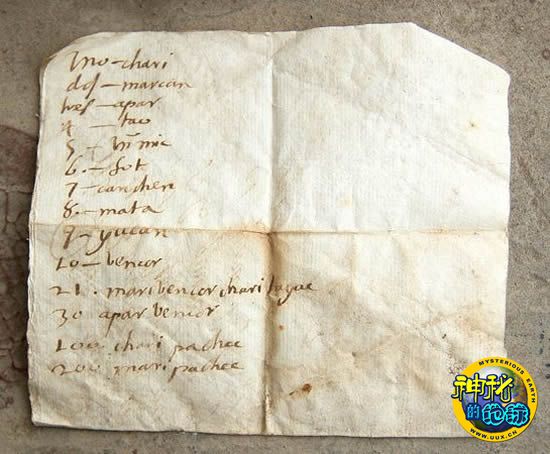 uno – chari
dos – marcan
tres – apar
4 – tao
5 – himic
6 – sut
7 – canchen
8 – mata
9 – yucan
10 – bencor
21 . maribencor chari tayac
30 apar bencor
100 chari pachac
200 mari pachac
神秘的地球
MYSTERIOUS EARTH
WWW.UUX.CN